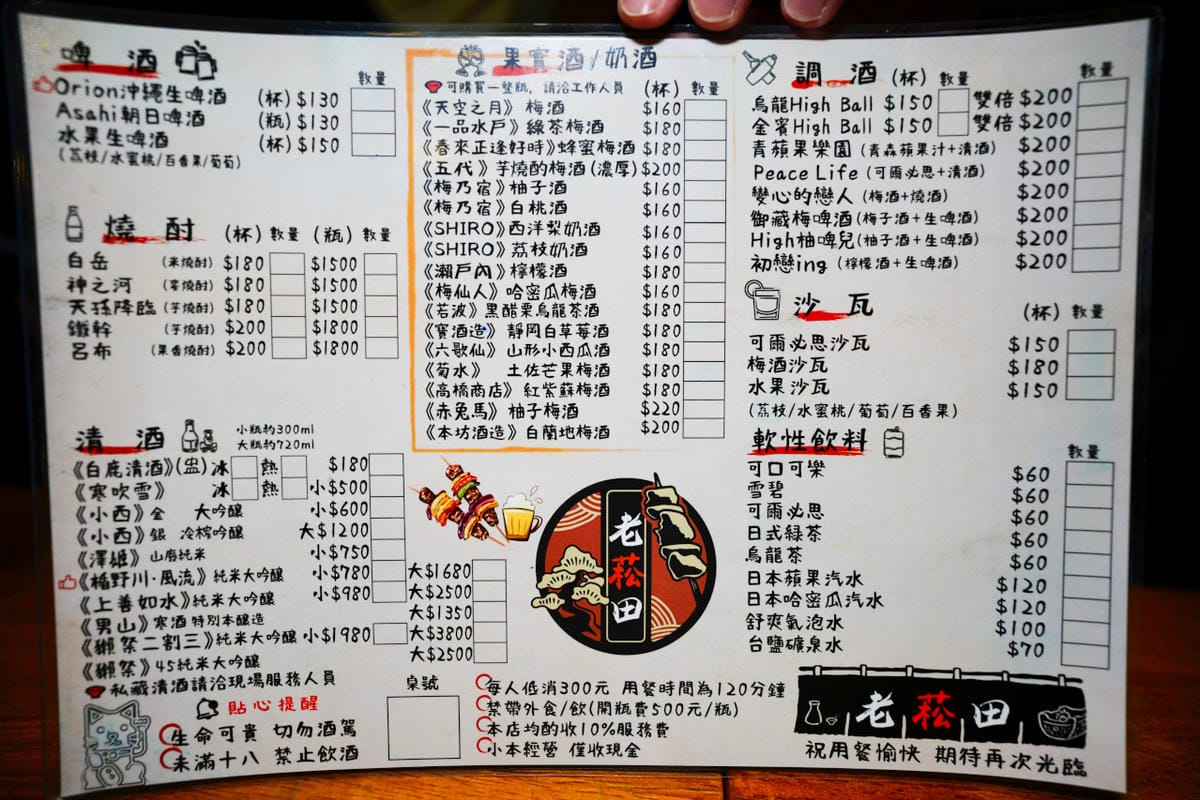 啤酒 數量
Orion沖繩生啤酒 (杯) $130
Asahi朝日啤酒 (瓶) $130
水果生啤酒 (杯) $150
(荔枝/水蜜桃/百香果/葡萄)
燒酎 (杯) 數量 (瓶) 數量
白岳 (米燒酎) $180 $1500
神之河 (麥燒酎) $180 $1500
天孫降臨 (芋燒酎) $180 $1500
鐵幹 (芋燒酎) $200 $1800
呂布 (果香燒酎) $200 $1800
清酒 小瓶約300ml
大瓶約720ml
《白鹿清酒》(盅) 冰 熱 $180
《寒吹雪》 冰 熱 小$500
《小西》金 大吟釀 小$600
《小西》銀 冷榨吟釀 大$1200
《澤姬》山廃純米 小$750
《楯野川·風流》純米大吟釀 小$780 大$1680
《上善如水》純米大吟釀 小$980 大$2500
《男山》寒酒 特別本釀造 大$1350
《獺祭二割三》純米大吟釀 小$1980 大$3800
《獺祭》45純米大吟釀 大$2500
私藏清酒請洽現場服務人員
貼心提醒
生命可貴 切勿酒駕
未滿十八 禁止飲酒
桌號
果實酒/奶酒
可購買一整瓶，請洽工作人員 (杯) 數量
《天空之月》梅酒 $160
《一品水戶》綠茶梅酒 $180
《春來正逢好時》蜂蜜梅酒 $180
《五代》芋燒酌梅酒(濃厚) $200
《梅乃宿》柚子酒 $160
《梅乃宿》白桃酒 $160
《SHIRO》西洋梨奶酒 $160
《SHIRO》荔枝奶酒 $160
《瀨戶內》檸檬酒 $180
《梅仙人》哈密瓜梅酒 $160
《若波》黑醋栗烏龍茶酒 $180
《寶酒造》靜岡白草莓酒 $180
《六歌仙》山形小西瓜酒 $180
《菊水》 土佐芒果梅酒 $180
《高橋商店》紅紫蘇梅酒 $180
《赤兔馬》柚子梅酒 $220
《本坊酒造》白蘭地梅酒 $200
老菘田
每人低消300元 用餐時間為120分鐘
禁帶外食/飲(開瓶費500元/瓶)
本店均酌收10%服務費
小本經營 僅收現金
調酒 (杯) 數量 數量
烏龍High Ball $150 雙倍 $200
金賓High Ball $150 雙倍 $200
青蘋果樂園 (青森蘋果汁+清酒) $200
Peace Life (可爾必思+清酒) $200
變心的戀人 (梅酒+燒酒) $200
御藏梅啤酒 (梅子酒+生啤酒) $200
High柚啤兒 (柚子酒+生啤酒) $200
初戀ing (檸檬酒+生啤酒) $200
沙瓦 (杯) 數量
可爾必思沙瓦 $150
梅酒沙瓦 $180
水果沙瓦 $150
(荔枝/水蜜桃/葡萄/百香果)
軟性飲料 數量
可口可樂 $60
雪碧 $60
可爾必思 $60
日式綠茶 $60
烏龍茶 $60
日本蘋果汽水 $120
日本哈密瓜汽水 $120
舒爽氣泡水 $100
台鹽礦泉水 $70
老菘田
祝用餐愉快 期待再次光臨